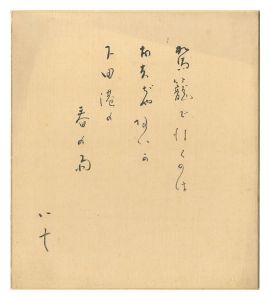 駕籠で行くのは
お吉ぢやないか
下田港の
春の雨
八十